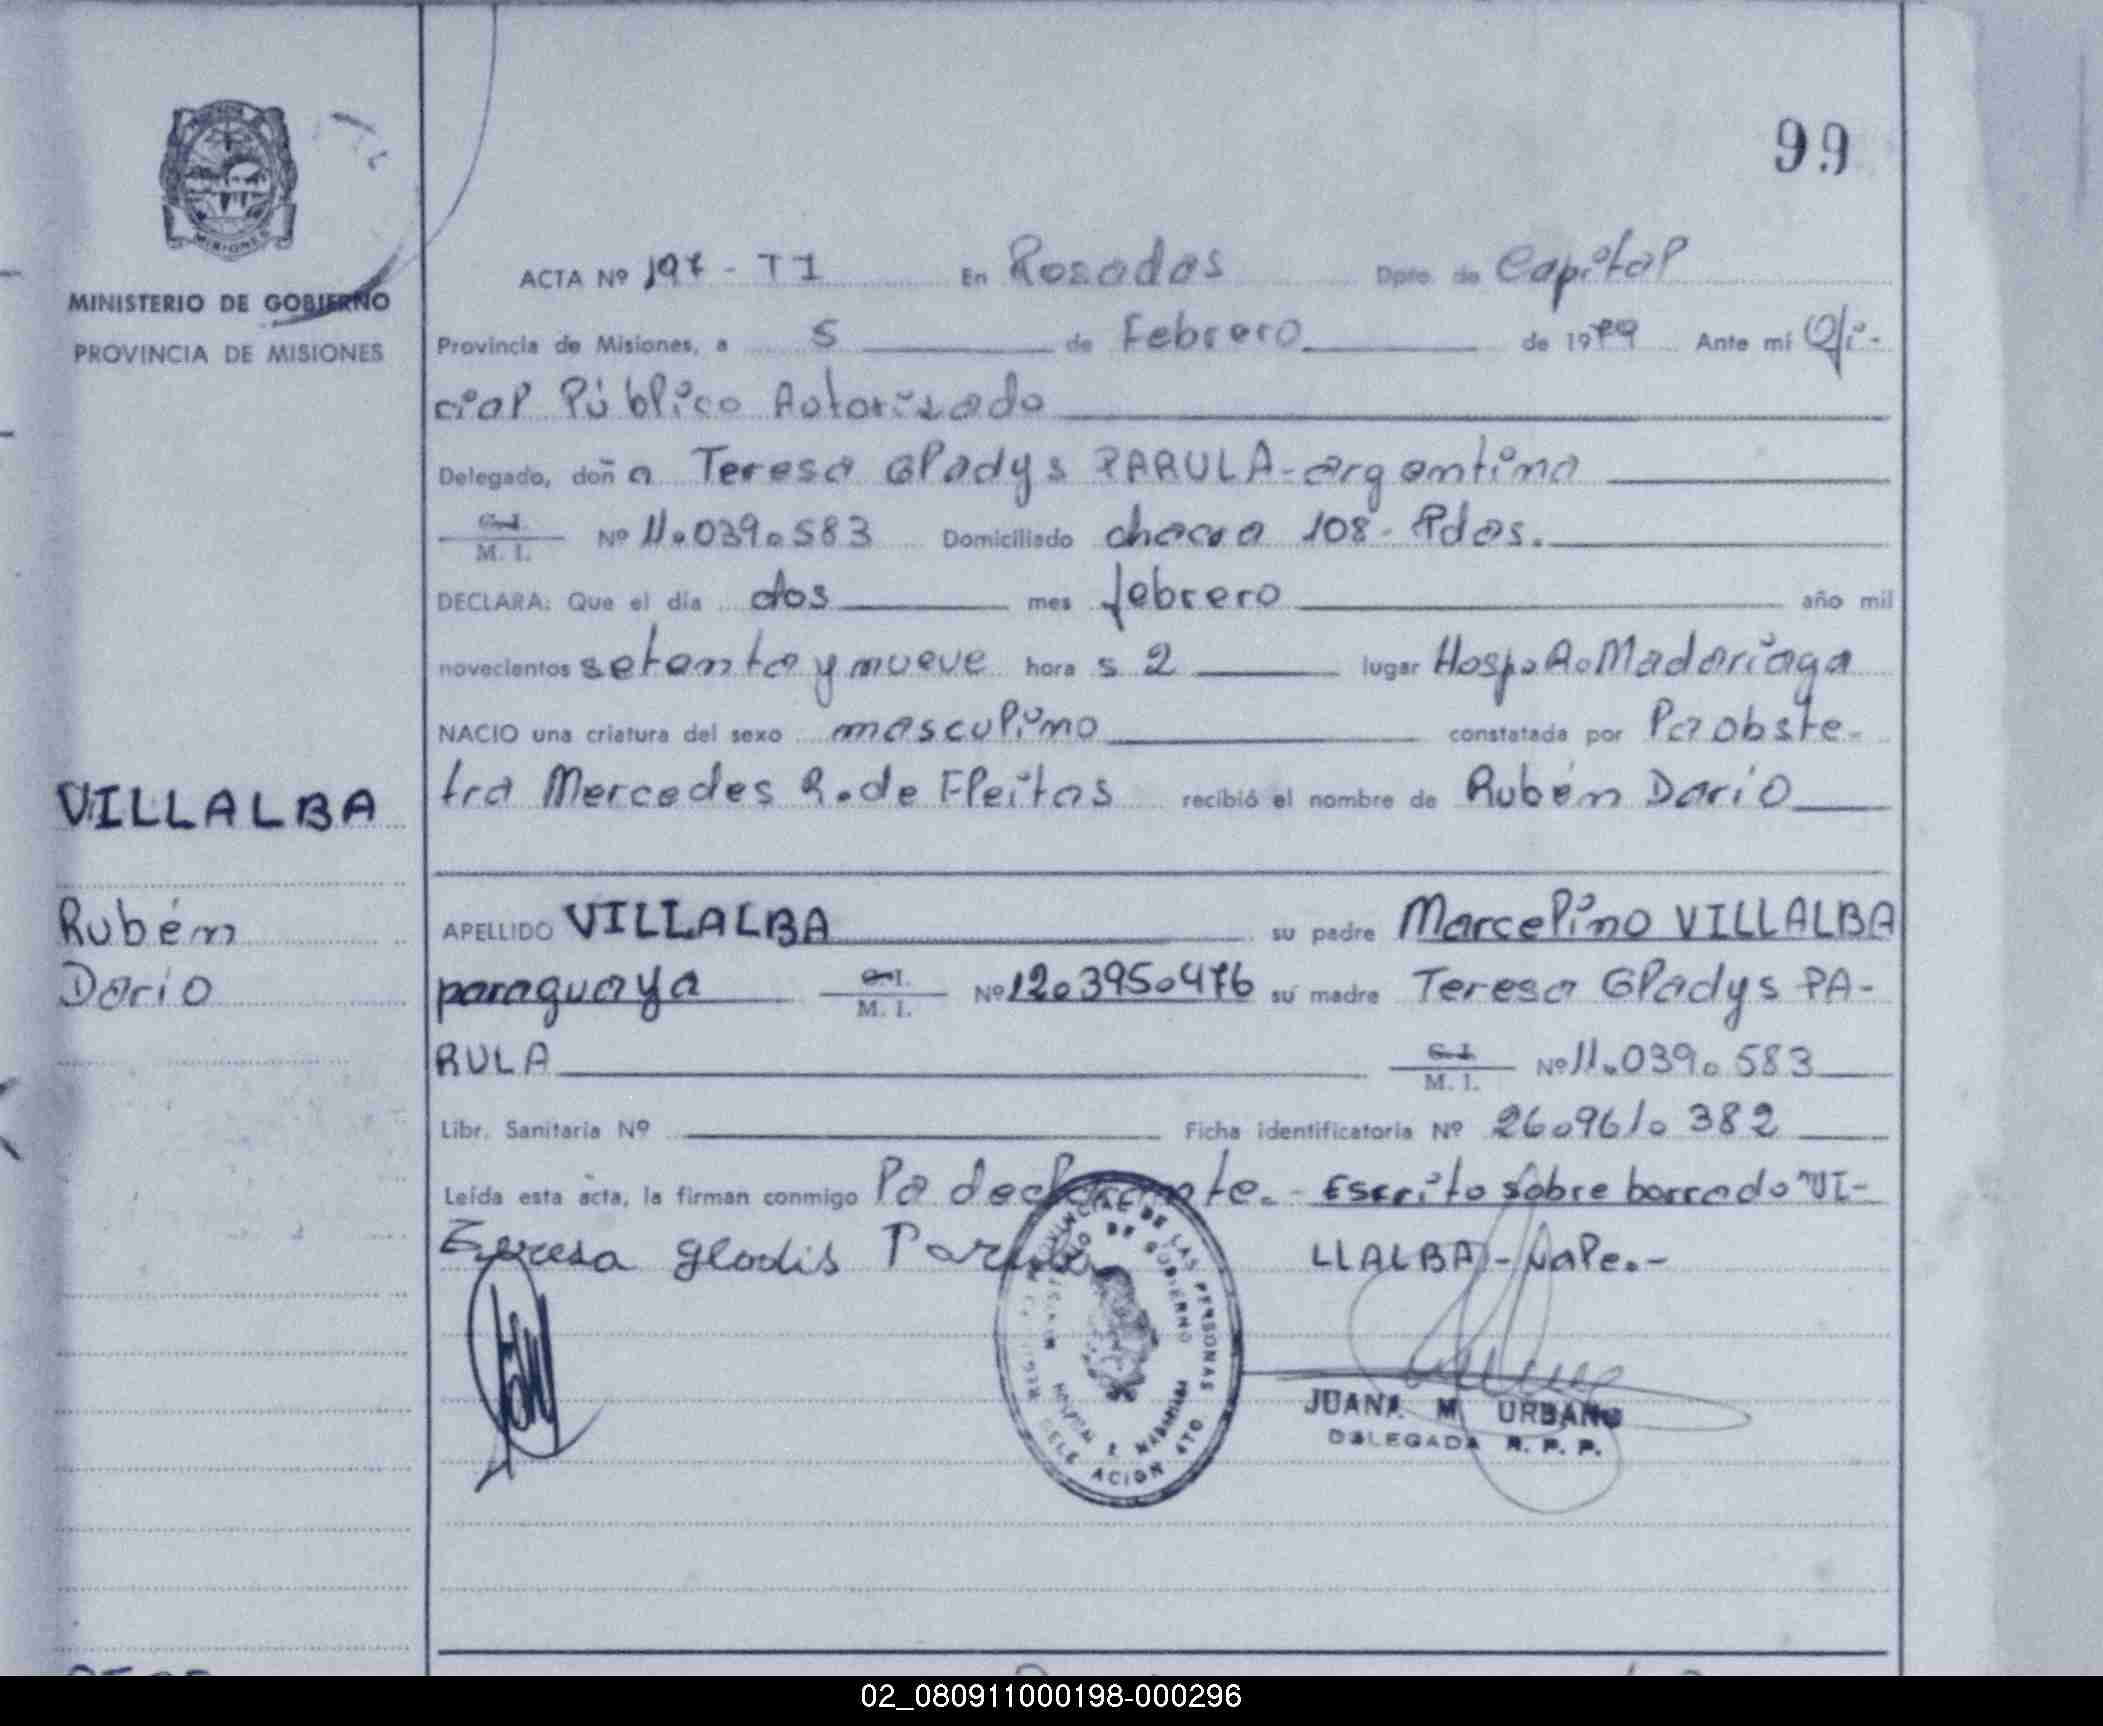 99
MISIONES
MINISTERIO DE GOBIERNO
PROVINCIA DE MISIONES
ACTA Nº 197 - T1 En Posadas Dpto. de Capital
Provincia de Misiones, a 5 de Febrero de 1979 Ante mí Ofi-
cial Público Autorizado
Delegado, doña Teresa Gladys PARULA - argentina
C.I. M. I. Nº 11.039.583 Domiciliado chacra 108 - Pdas.
DECLARA: Que el día dos mes febrero año mil
novecientos setenta y nueve hora s 2 lugar Hosp. R. Madariaga
NACIO una criatura del sexo masculino constatada por la obste-
tra Mercedes R. de Fleitas recibió el nombre de Rubén Darío
VILLALBA
Rubén
Darío
APELLIDO VILLALBA su padre Marcelino VILLALBA
paraguaya C.I. M. I. Nº 12.395.476 su madre Teresa Gladys PA-
RULA C.I. M. I. Nº 11.039.583
Libr. Sanitaria Nº Ficha identificatoria Nº 26.961.382
Leída esta acta, la firman conmigo la declarante. - Escrito sobre borrado "VI-
LLALBA - vale. -
Teresa glodis Parula
PROVINCIAL DE LAS PERSONAS
MINISTERIO DE GOBIERNO
HOSPITAL R. MADARIAGA
DELEGACION 4TO
JUANA M URBANO
DELEGADA R. P. P.
02_080911000198-000296